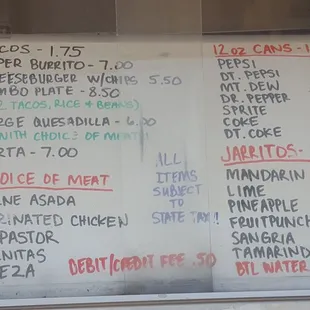 COS - 1.75
PER BURRITO - 7.00
EESEBURGER W/CHIPS 5.50
MBO PLATE - 8.50
2 TACOS, RICE & BEANS)
RGE QUESADILLA - 6.00
WITH CHOICE OF MEAT
RTA - 7.00
OICE OF MEAT
NE ASADA
RINATED CHICKEN
PASTOR
NITAS
EZA
ALL
ITEMS
SUBJECT
TO
STATE TAX!
DEBIT/CREDIT FEE .50
12 OZ CANS - 1
PEPSI
DT. PEPSI
MT. DEW
DR. PEPPER
SPRITE
COKE
DT. COKE
JARRITOS -
MANDARIN
LIME
PINEAPPLE
FRUITPUNCH
SANGRIA
TAMARIND
BTL WATER